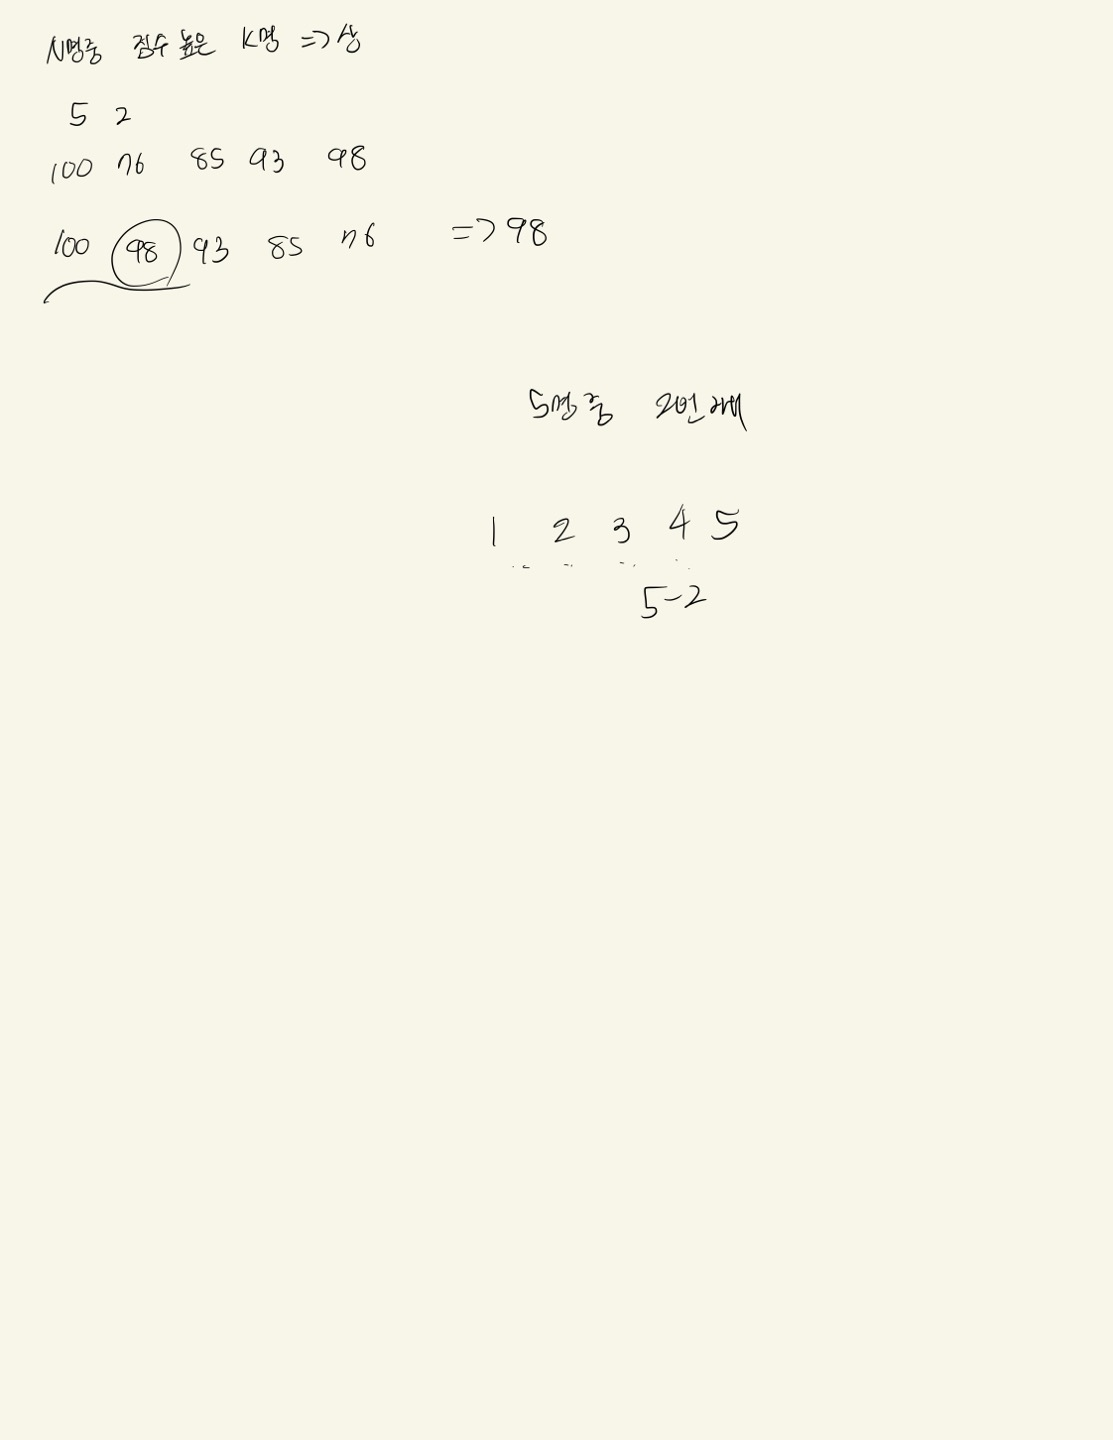 N명중 점수 높은 K명 => 상
5 2
100 76 85 93 98
100 98 93 85 76 => 98
5명 중 2번째
1 2 3 4 5
5-2